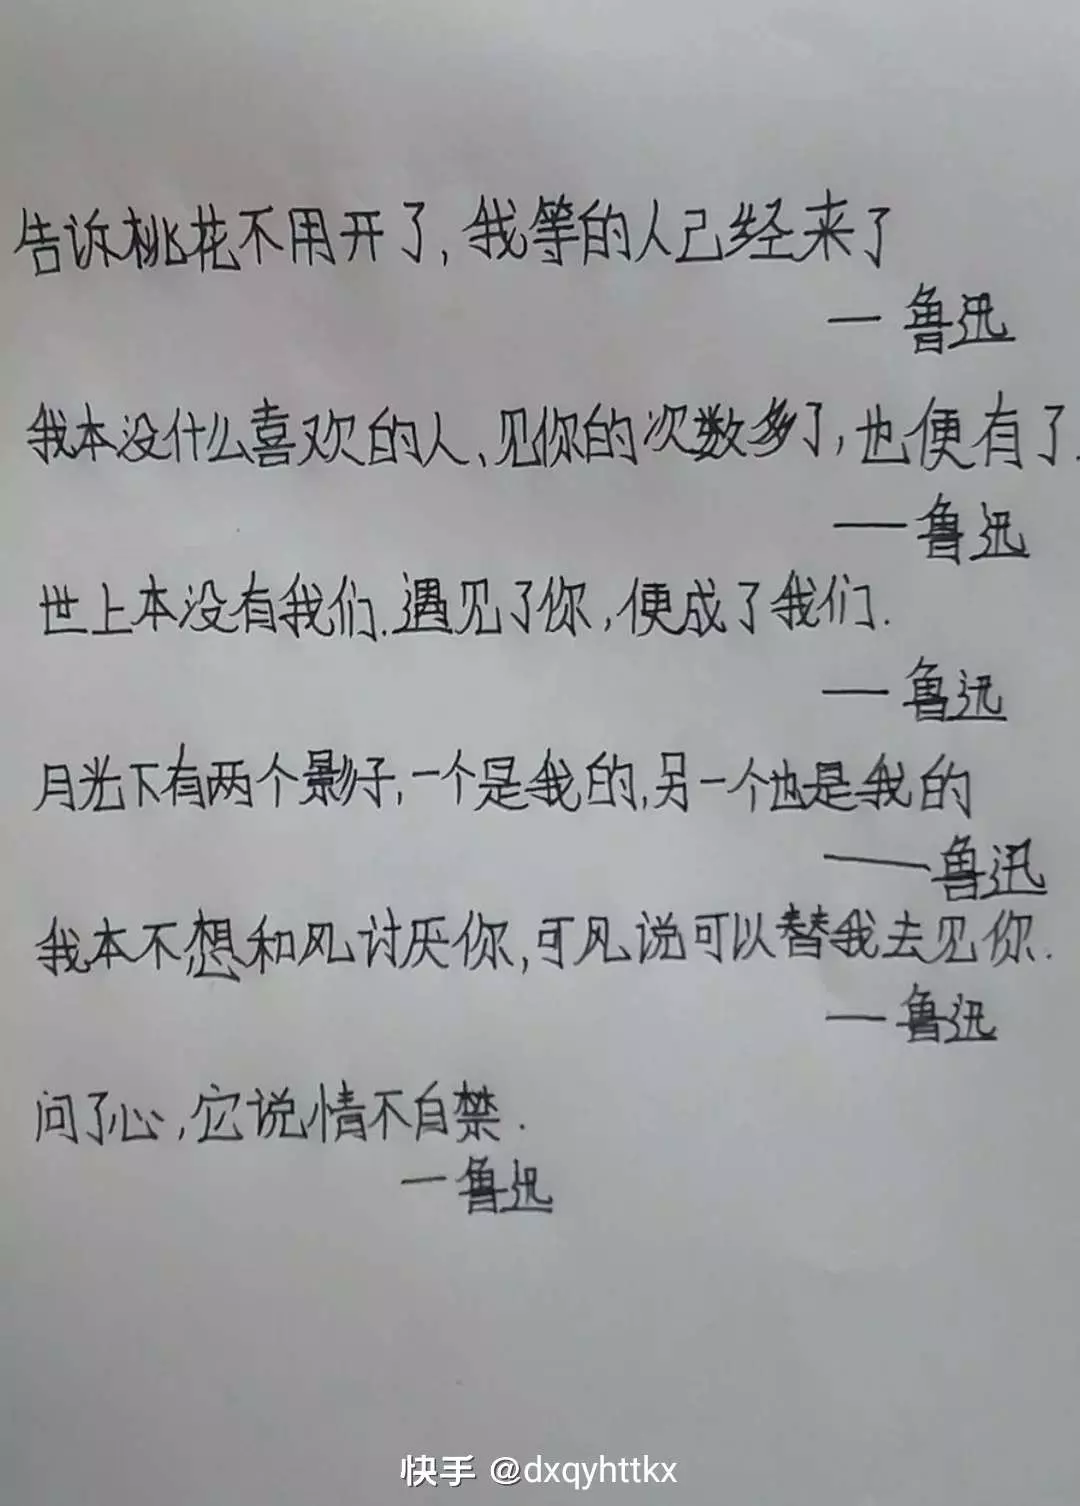 告诉桃花不用开了,我等的人已经来了
一 鲁迅
我本没什么喜欢的人、见你的次数多了,也便有了.
—— 鲁迅
世上本没有我们.遇见了你,便成了我们.
— 鲁迅
月光下有两个影子,一个是我的,另一个也是我的
——鲁迅
我本不想和风讨厌你,可风说可以替我去见你.
— 鲁迅
问了心,它说情不自禁.
— 鲁迅
快手 @dxqyhttkx